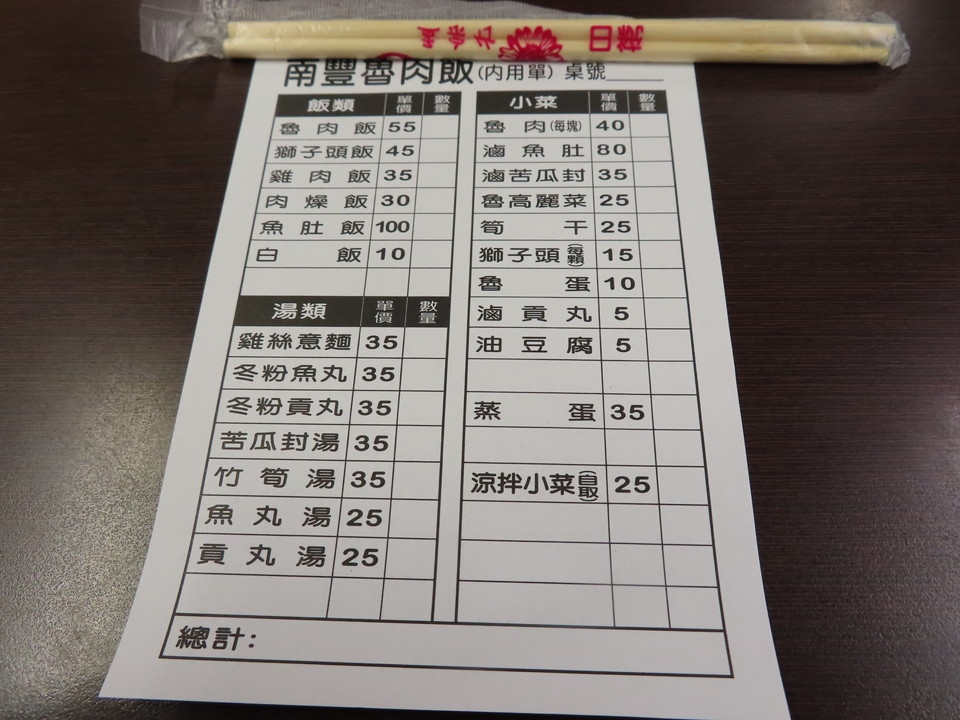 南豐魯肉飯(內用單) 桌號
飯類 單價 數量
魯肉飯 55
獅子頭飯 45
雞肉飯 35
肉燥飯 30
魚肚飯 100
白飯 10
湯類 單價 數量
雞絲意麵 35
冬粉魚丸 35
冬粉貢丸 35
苦瓜封湯 35
竹筍湯 35
魚丸湯 25
貢丸湯 25
小菜 單價 數量
魯肉(每塊) 40
滷魚肚 80
滷苦瓜封 35
魯高麗菜 25
筍干 25
獅子頭(每顆) 15
魯蛋 10
滷貢丸 5
油豆腐 5
蒸蛋 35
涼拌小菜(自取) 25
總計: